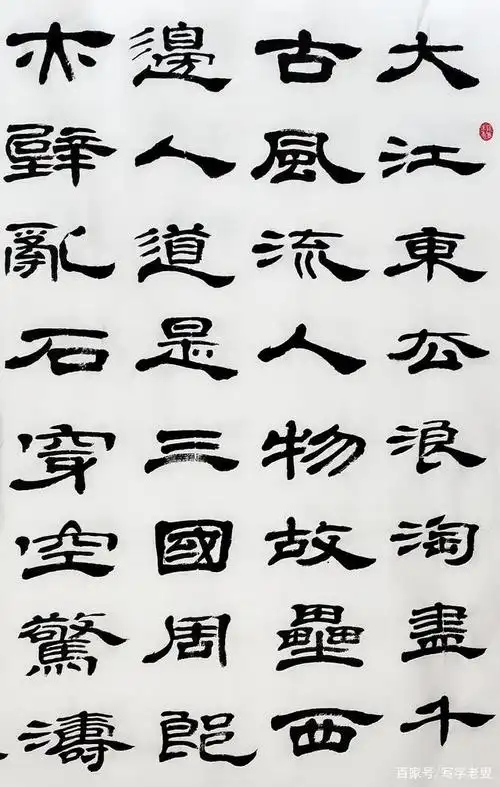 大江東去浪淘盡千
古風流人物故壘西
邊人道是三國周郎
赤壁亂石穿空驚濤
百家号/写字老叟